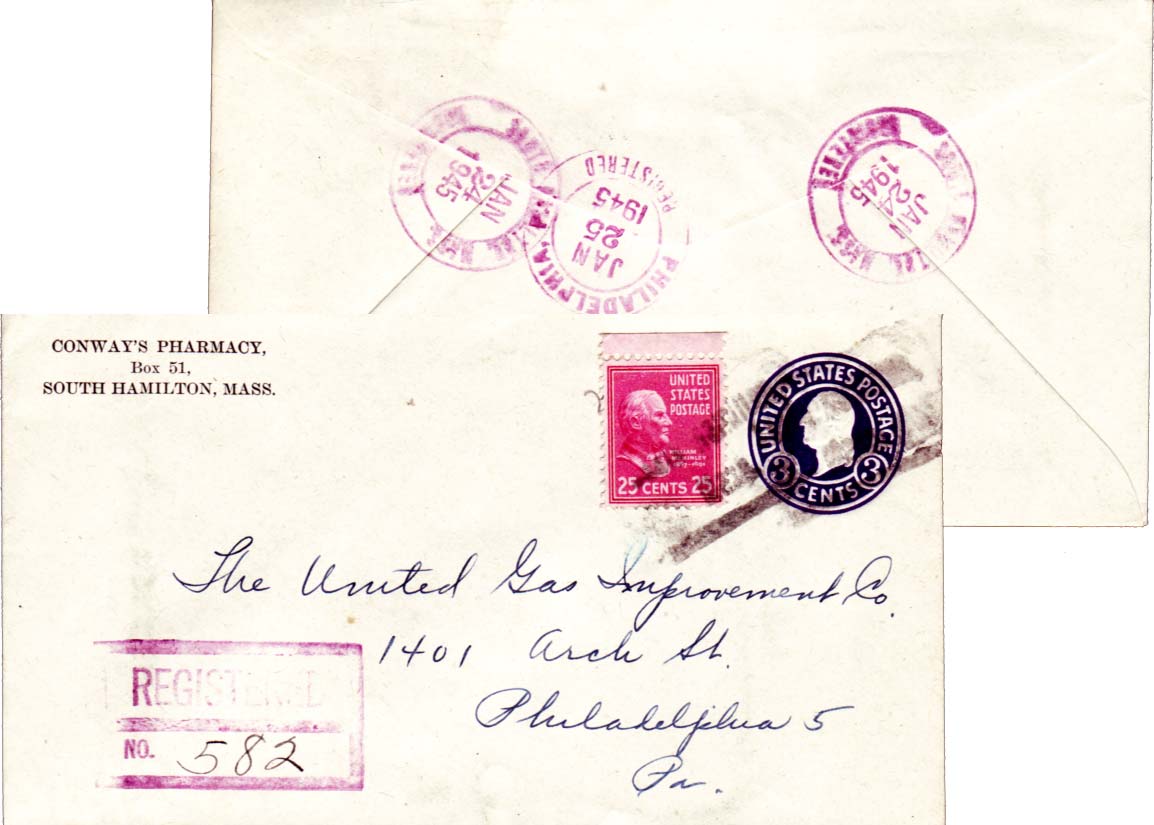 JAN
24
1945
MASS.
REGISTERED
PHILADELPHIA,
JAN
25
1945
JAN
24
1945
MASS.
CONWAY'S PHARMACY,
Box 51,
SOUTH HAMILTON, MASS.
UNITED
STATES
POSTAGE
WILLIAM
McKINLEY
25 CENTS 25
UNITED STATES POSTAGE
3 CENTS 3
The United Gas Improvement Co.
1401 Arch St.
Philadelphia 5
Pa.
REGISTERED
NO. 582